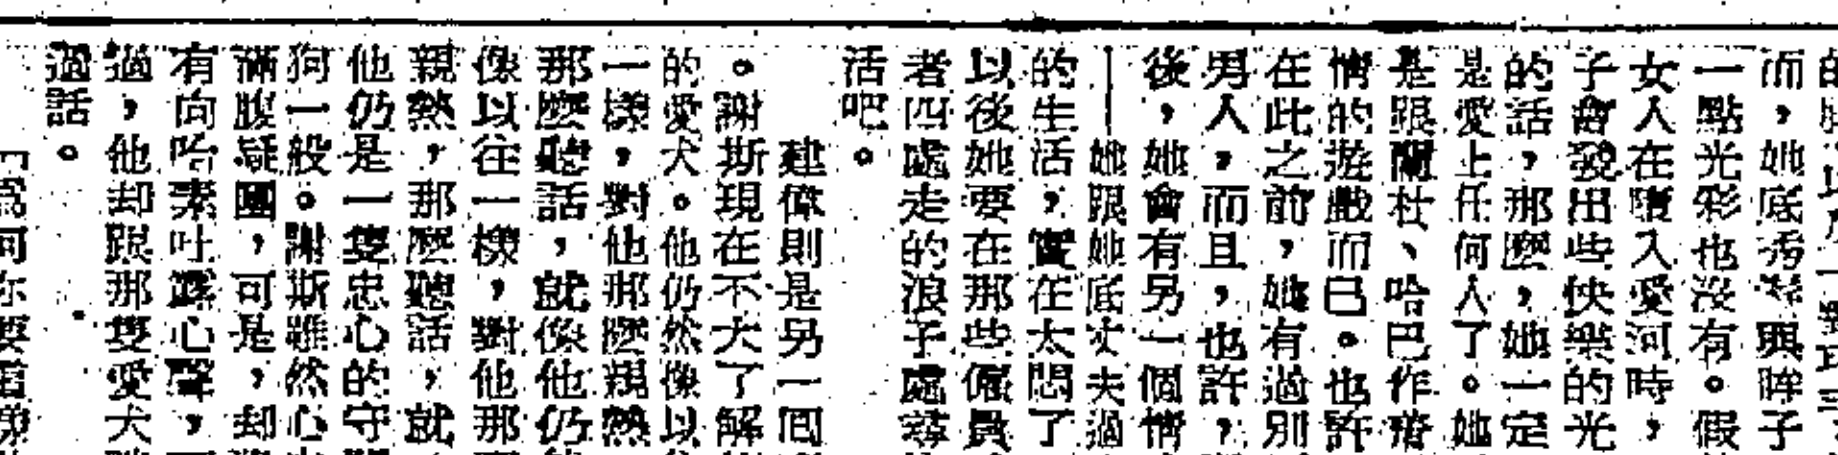 而，她底秀髮與眸子
一點光彩也沒有。假
女人在墮入愛河時，
子會發出些快樂的光
的話，那麼，她一定
是愛上任何人了。她
是跟蘭杜、哈巴作齊
情的遊戲而已。也許
在此之前，她有過別
男人，而且，也許，
後，她會有另一個情
——她跟她底丈夫過
的生活，實在太悶了
以後她要在那些僱員
者四處走的浪子處尋
活吧。
建偉則是另一囘
。謝斯現在不大了解
的愛犬。他仍然像以
一樣，對他那麼親熱
那麼聽話，就像他仍
像以往一樣，對他那
親熱，那麼聽話，就
他仍是一隻忠心的守
狗一般。謝斯雖然心
滿腹疑團，可是，却
有向哈素吐露心聲，
過，他却跟那隻愛犬
過話。
「為何你要